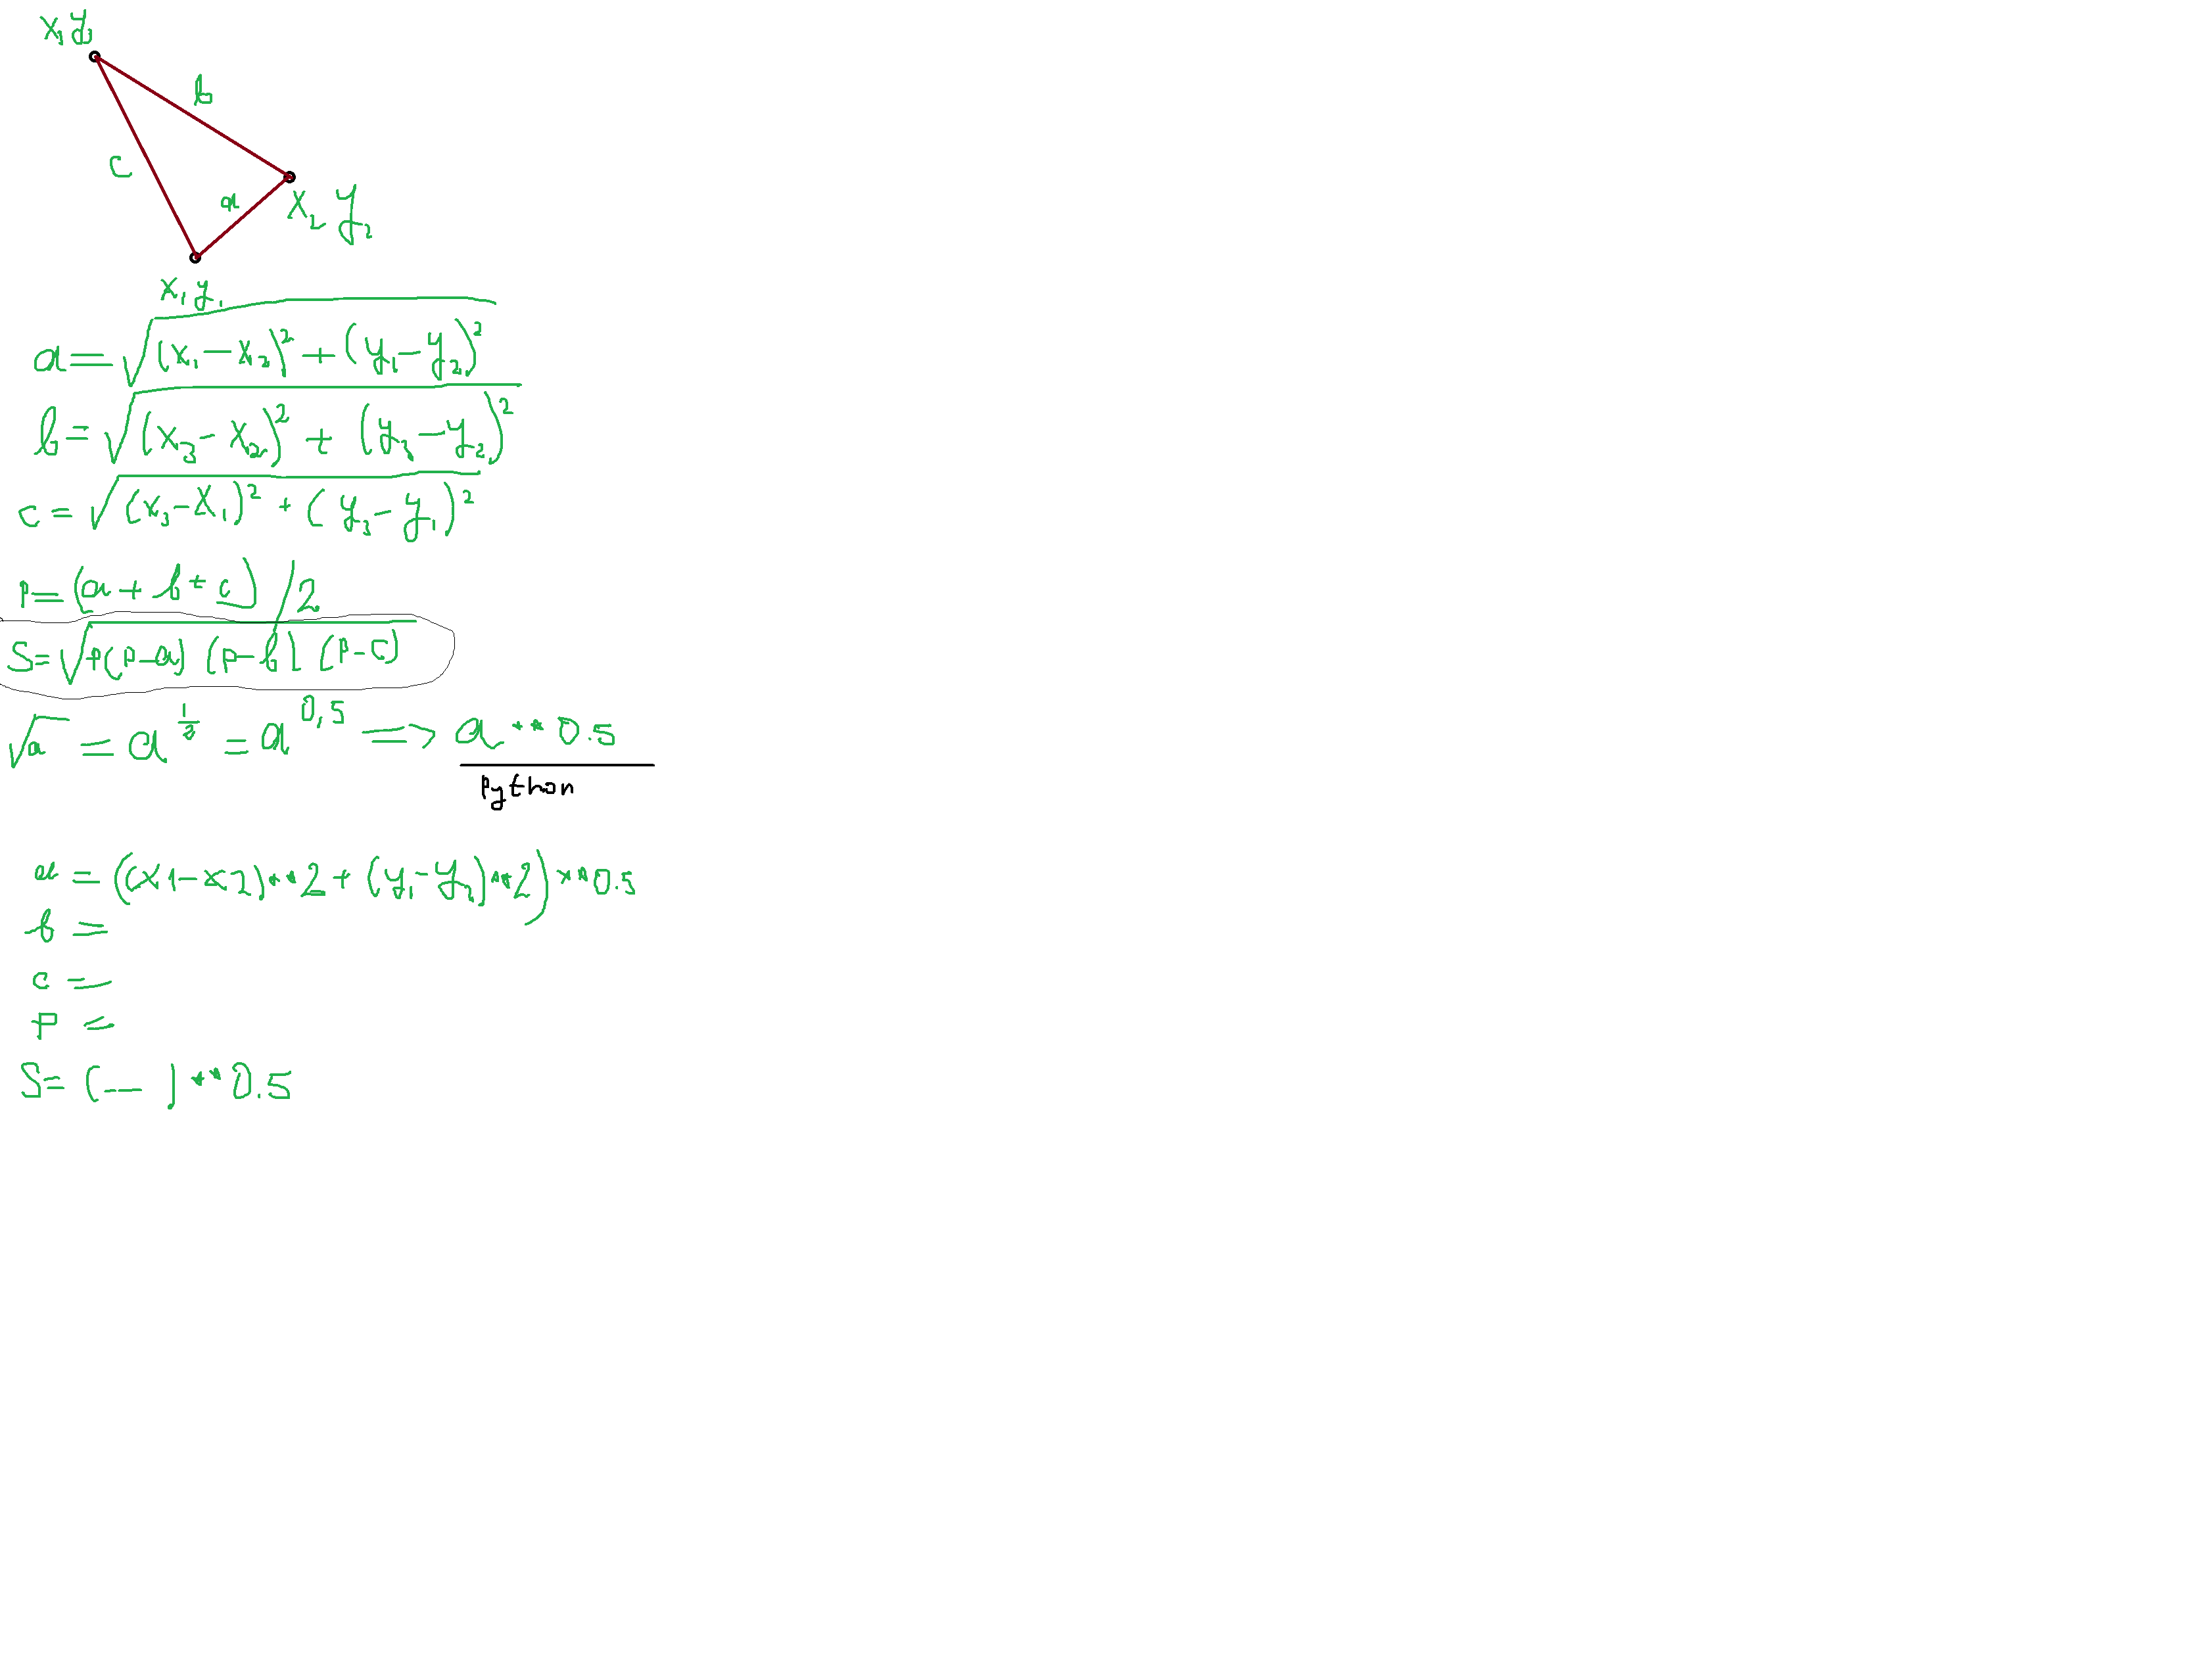 x₃ y₃
b
c
a
x₂ y₂
x₁ y₁
a = √((x₁ − x₂)² + (y₁ − y₂)²)
b = √((x₃ − x₂)² + (y₃ − y₂)²)
c = √((x₃ − x₁)² + (y₃ − y₁)²)
p = (a + b + c) / 2
S = √(p(p−a) (p−b) (p−c))
√a = a^(1/2) = a^(0,5) ⟹ a**0.5
Python
a = ((x1−x2)**2 + (y₁−y₂)**2)**0.5
b =
c =
p =
S = (—)**0.5